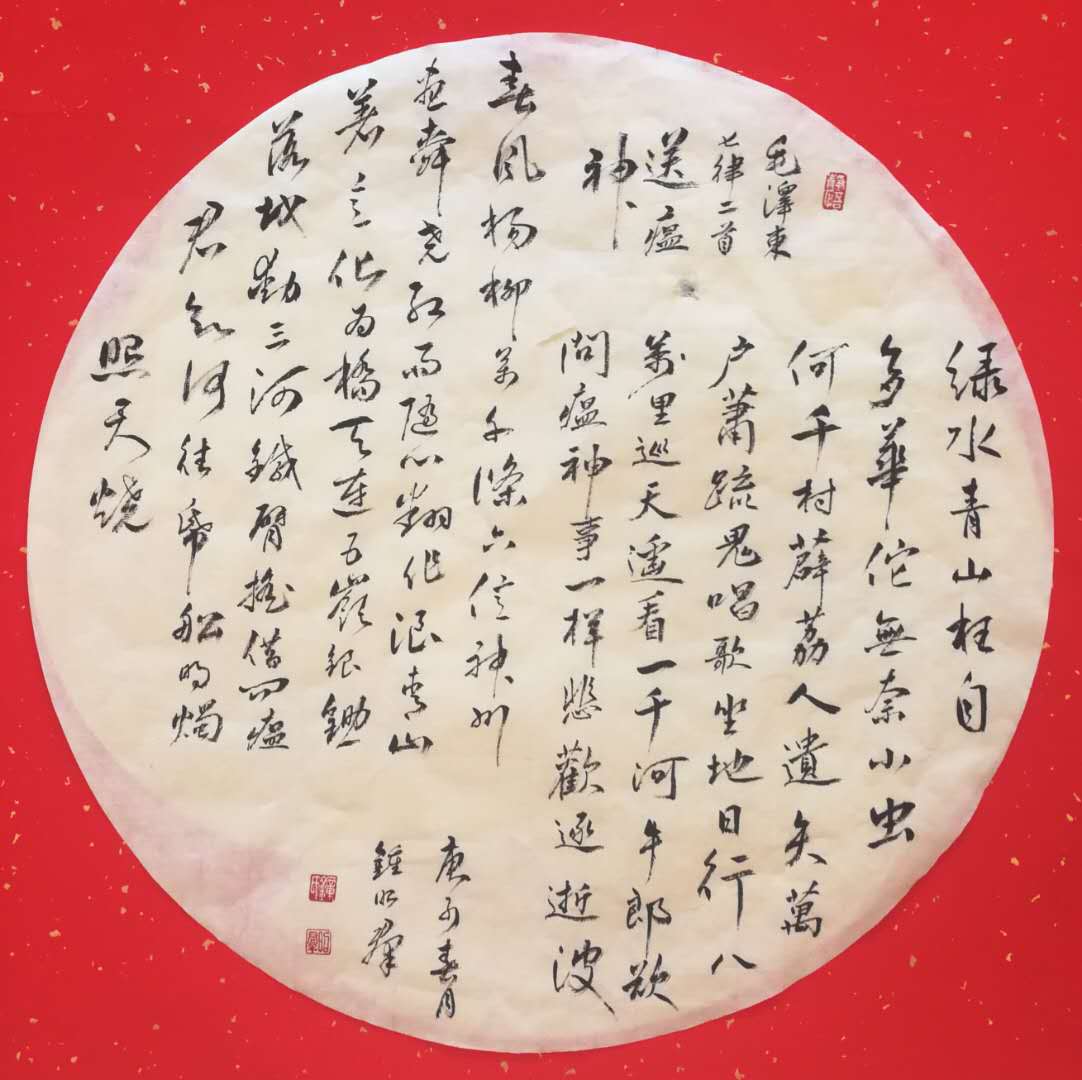 毛澤東
七律二首
送瘟
神
绿水青山枉自
多華佗無奈小虫
何千村薜荔人遺矢萬
户蕭疏鬼唱歌坐地日行八
萬里巡天遥看一千河牛郎欲
問瘟神事一样悲歡逐逝波
春风杨柳萬千條六億神州
盡舜尧红雨随心翻作浪青山
着意化为橋天連五嶺銀鋤
落地動三河鐵臂摇借问瘟
君欲何往纸船明燭
照天烧
庚子春月
鍾